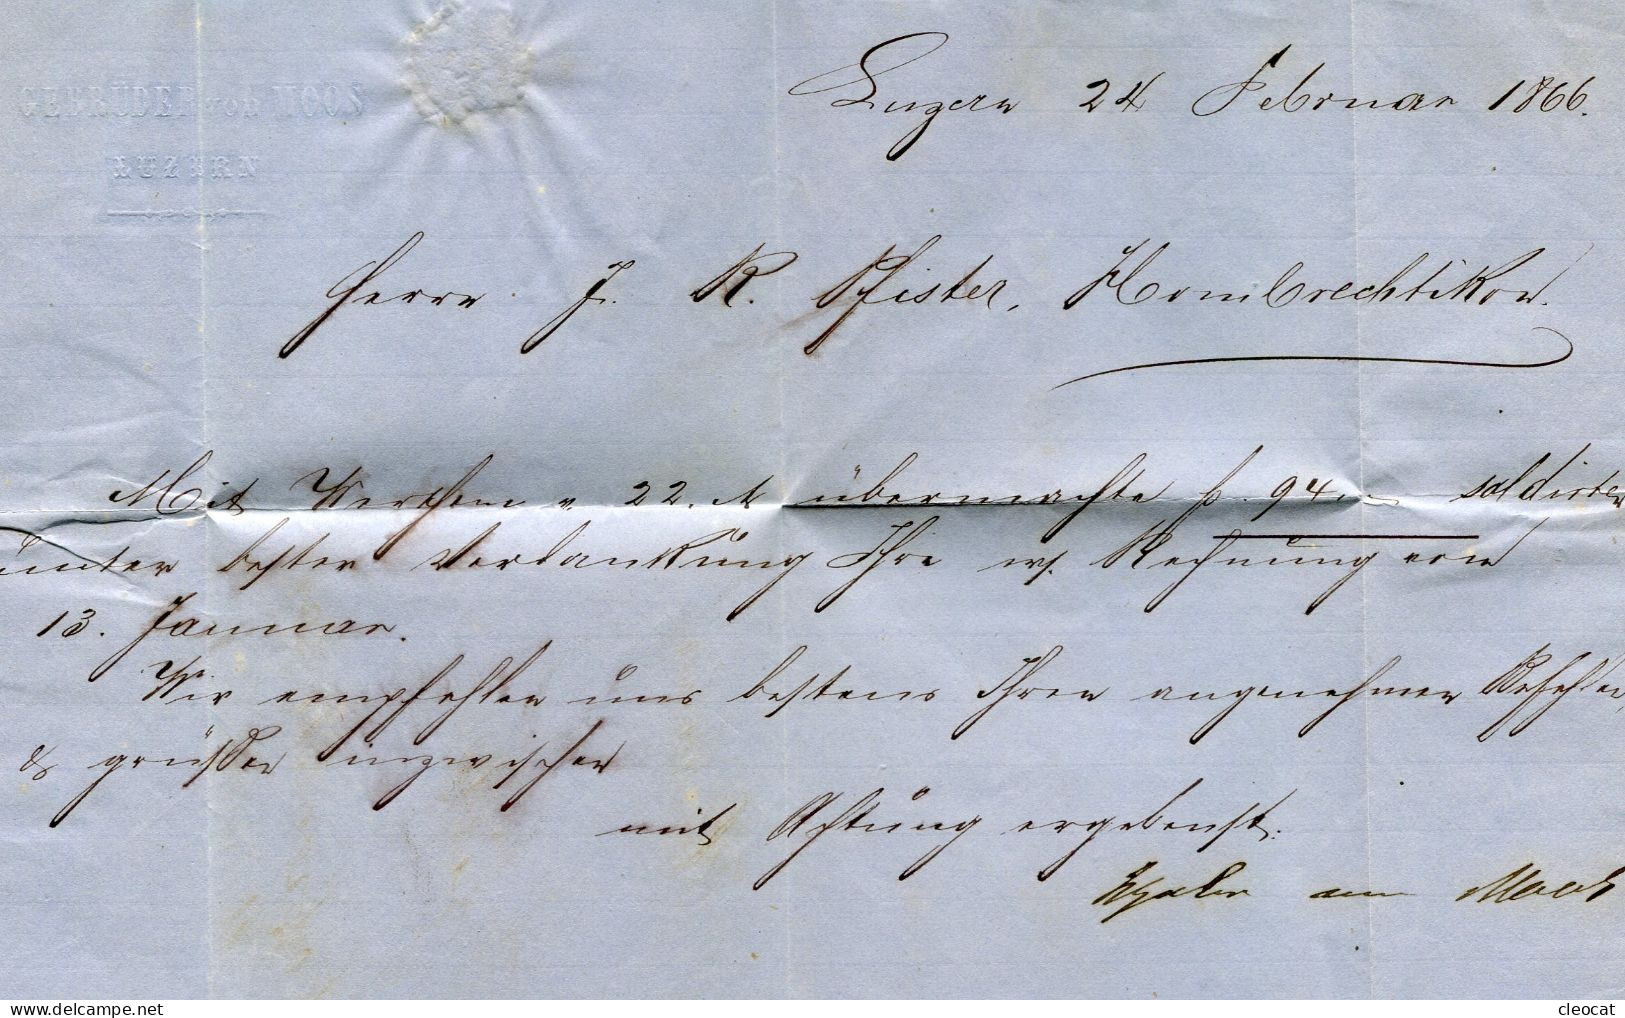 GEBRÜDER von MOOS
LUZERN
Luzern 24 Februar 1866.
Herrn J. R. Pfister, Hombrechtikon.
Mit Werthem v. 22. ds übermachte fr. 94. – soldirten
unter bester Verdankung Ihre w. Rechnung vom
13. Januar.
Wir empfehlen uns bestens Ihren angenehmen Befehlen,
& grüßen inzwischen
mit Achtung ergebenst.
cleocat